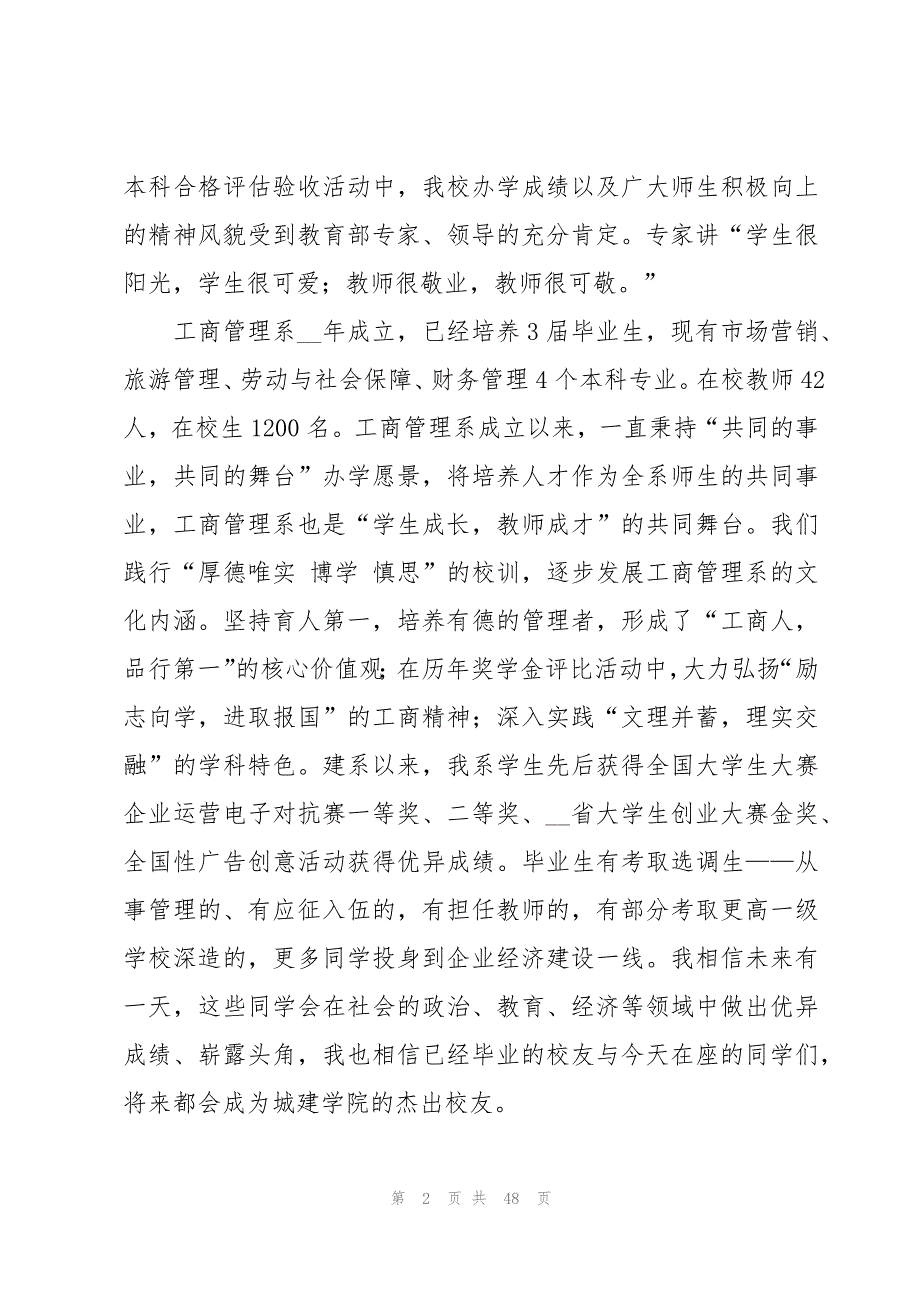 本科合格评估验收活动中，我校办学成绩以及广大师生积极向上
的精神风貌受到教育部专家、领导的充分肯定。专家讲“学生很
阳光，学生很可爱；教师很敬业，教师很可敬。”
工商管理系__年成立，已经培养 3 届毕业生，现有市场营销、
旅游管理、劳动与社会保障、财务管理 4 个本科专业。在校教师 42
人，在校生 1200 名。工商管理系成立以来，一直秉持“共同的事
业，共同的舞台”办学愿景，将培养人才作为全系师生的共同事
业，工商管理系也是“学生成长，教师成才”的共同舞台。我们
践行“厚德唯实 博学 慎思”的校训，逐步发展工商管理系的文
化内涵。坚持育人第一，培养有德的管理者，形成了“工商人，
品行第一”的核心价值观；在历年奖学金评比活动中，大力弘扬“励
志向学，进取报国”的工商精神；深入实践“文理并蓄，理实交
融”的学科特色。建系以来，我系学生先后获得全国大学生大赛
企业运营电子对抗赛一等奖、二等奖、__省大学生创业大赛金奖、
全国性广告创意活动获得优异成绩。毕业生有考取选调生——从
事管理的、有应征入伍的，有担任教师的，有部分考取更高一级
学校深造的，更多同学投身到企业经济建设一线。我相信未来有
一天，这些同学会在社会的政治、教育、经济等领域中做出优异
成绩、崭露头角，我也相信已经毕业的校友与今天在座的同学们，
将来都会成为城建学院的杰出校友。
第 2 页 共 48 页